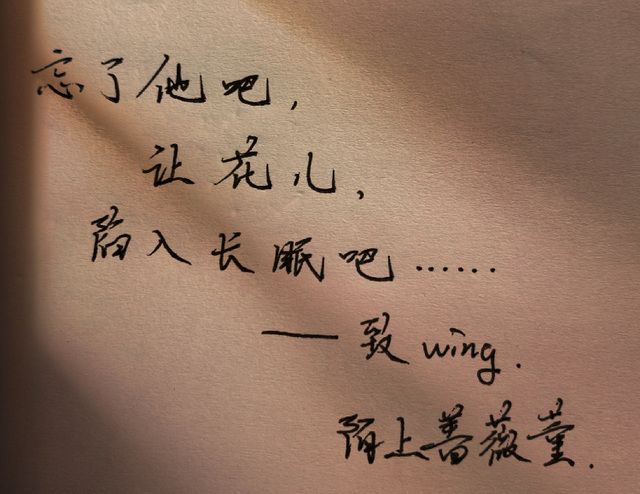 忘了他吧,
让花儿,
陷入长眠吧……
——致 wing.
陌上蔷薇堇.